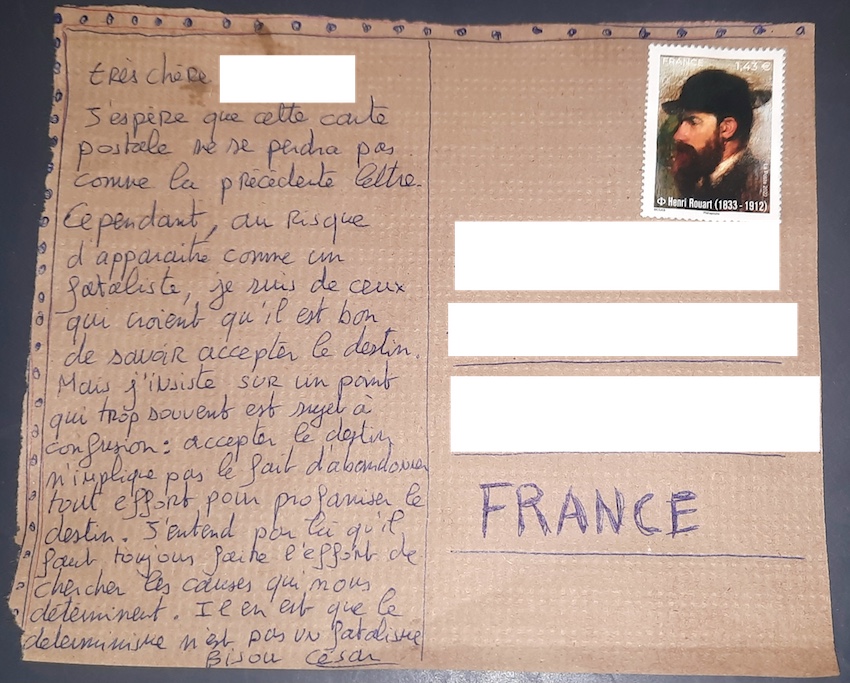 très chère
J'espère que cette carte
postale ne se perdra pas
comme la précédente lettre.
Cependant, au risque
d'apparaitre comme un
fataliste, je suis de ceux
qui croient qu'il est bon
de savoir accepter le destin.
Mais j'insiste sur un point
qui trop souvent est sujet à
confusion : accepter le destin
n'implique pas le fait d'abandonner
tout effort pour profaniser le
destin. J'entend par là qu'il
faut toujours faire l'effort de
chercher les causes qui nous
déterminent. Il en est que le
determinisme n'est pas un fatalisme
Bisou César
FRANCE 1,43 €
Henri Rouart (1833 - 1912)
FRANCE